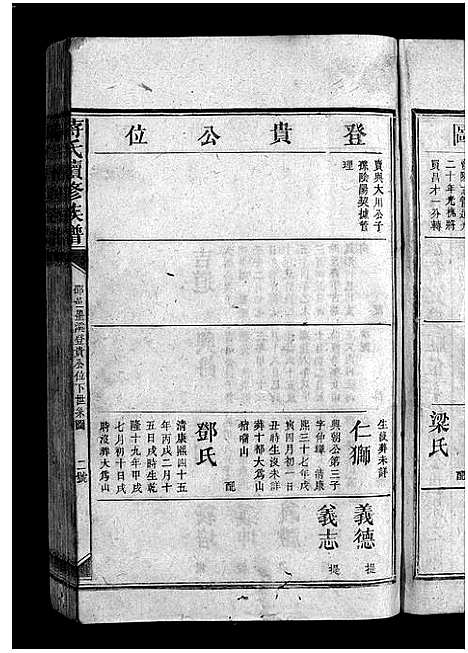 圖
二十年光槐將
買昌才一分轉
梁氏
登貴公位
賣與大川公子
孫陰陽契據管
理
生歿葬未詳
仁獅
興朝公第三子
字仲肆 清康
熙三十七年戊
寅四月初一日
丑時生沒未詳
葬十都大窩山
豬嘴山
配
鄧氏
清康熙四十五
年丙戌二月十
五日戌時生乾
隆十九年甲戌
七月初十日戌
時沒葬大窩山
義德
提
義志
提
蔣氏續修族譜
登貴公位下世系圖
二號
配